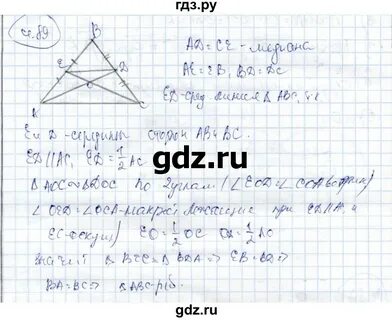 гдз.рф
ст. 89
B
E
D
O
A
C
AD = CE - медиана
AE = EB, BD = DC
ED - сред линия Δ ABC, т.к
E и D - середины сторон AB и BC.
ED || AC, ED = 1/2 AC
gdz.ru
Δ AOC ∾ Δ DOE по 2 углам (∠EOD = ∠COA
∠OED = ∠OCA - накрест лежащие при ED || A и
EC - секущ) EO = 1/2 OC OD = 1/2 AO
gdz.ru
Значит Δ BEC = Δ BDA => EB = BD =>
BA = BC => Δ ABC - р/б.
гдз.рф